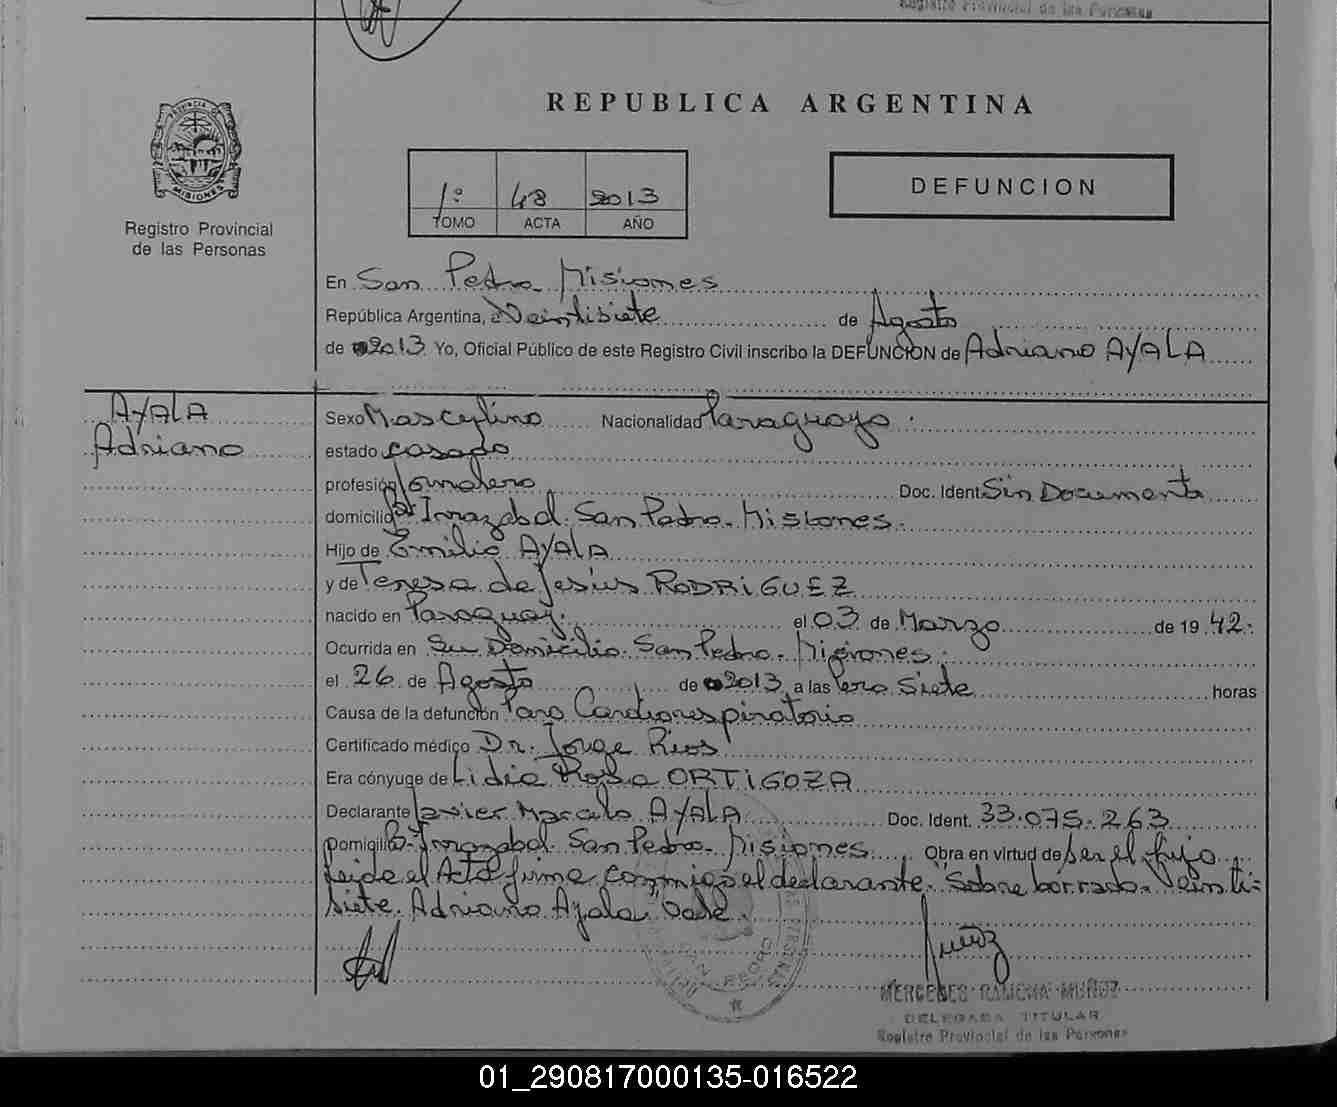 Registro Provincial de las Personas
REPUBLICA ARGENTINA
PROVINCIA DE
MISIONES
1º 48 2013
TOMO ACTA AÑO
DEFUNCION
Registro Provincial
de las Personas
En San Pedro Misiones
República Argentina, a Veintisiete de Agosto
de 2013. Yo, Oficial Público de este Registro Civil inscribo la DEFUNCION de Adriano AYALA
AYALA
Adriano
Sexo Masculino Nacionalidad Paraguayo.
estado casado
profesión Jornalero Doc. Ident. Sin Documento
domicilio Bº Irrazabal. San Pedro. Misiones.
Hijo de Emilio AYALA
y de Teresa de Jesús RODRIGUEZ
nacido en Paraguay. el 03 de Marzo de 19 42.
Ocurrida en Su Domicilio. San Pedro. Misiones.
el 26 de Agosto de 2013 a las Siete horas
Causa de la defunción Paro Cardiorespiratorio
Certificado médico Dr. Jorge Rios
Era cónyuge de Lidia Rosa ORTIGOZA
Declarante Javier Marcelo AYALA Doc. Ident. 33.075.263
Domicilio Bº Irrazabal. San Pedro. Misiones. Obra en virtud de ser el hijo.
Leida el Acta firma conmigo el declarante. "Sobre borrado. Veinti-
siete. Adriano Ayala" Vale.
SAN PEDRO
MERCEDES RAMONA MUÑOZ
DELEGADA TITULAR
Registro Provincial de las Personas
01_290817000135-016522